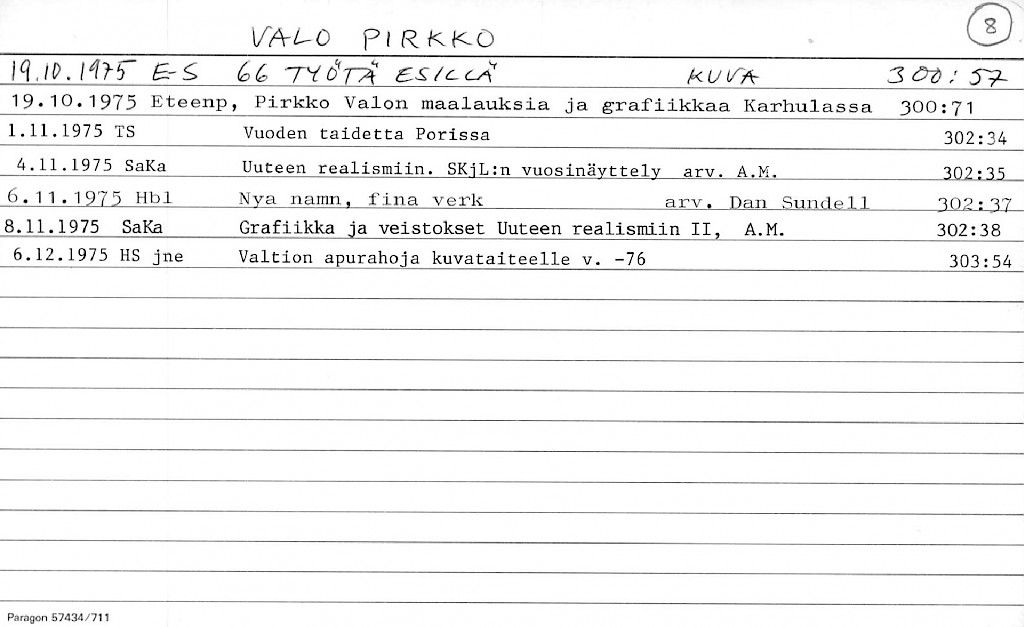 VALO PIRKKO 8
19.10.1975 E-S 66 TYÖTÄ ESILLÄ KUVA 300:57
19.10.1975 Eteenp, Pirkko Valon maalauksia ja grafiikkaa Karhulassa 300:71
1.11.1975 TS Vuoden taidetta Porissa 302:34
4.11.1975 SaKa Uuteen realismiin. SKjL:n vuosinäyttely arv. A.M. 302:35
6.11.1975 Hbl Nya namn, fina verk arv. Dan Sundell 302:37
8.11.1975 SaKa Grafiikka ja veistokset Uuteen realismiin II, A.M. 302:38
6.12.1975 HS jne Valtion apurahoja kuvataiteelle v. -76 303:54
Paragon 57434/711